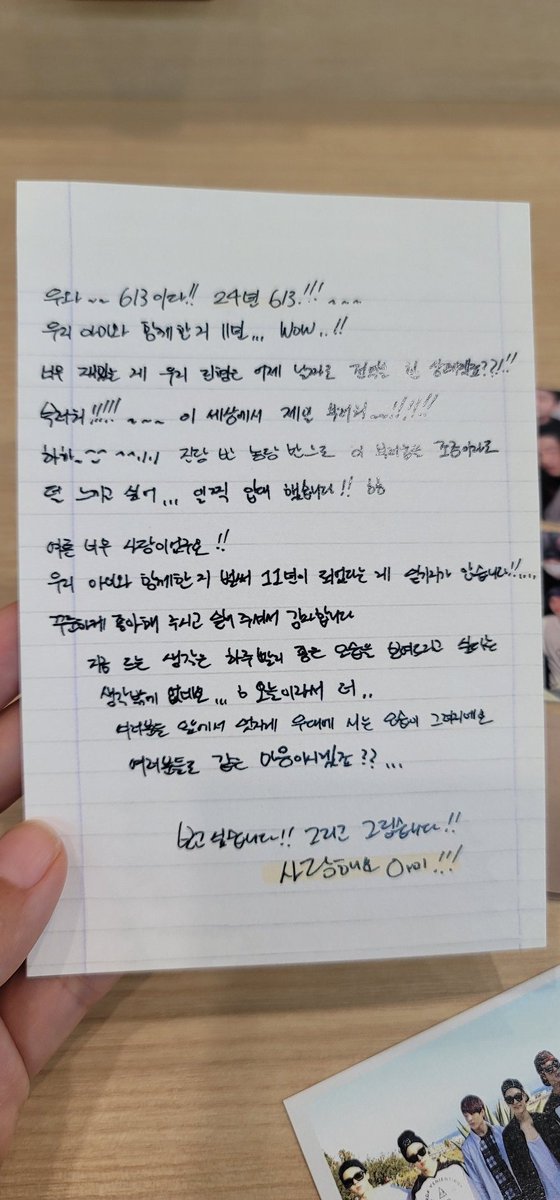 우와~~ 613이다!! 24년 613!!! ~~~
우리 아미와 함께한지 11년... WOW..!!
너무 재밌는 게 우리 진형은 어제 날짜로 전역을 한 상태겠죠??!!!
부러워!!!!! ~~~ 이 세상에서 제일 부러워...!!!!!
하하.^^ ^^,,, 진담 반 농담 반으로 이 부러움은 조금이라도
덜 느끼고 싶어... 일찍 입대 했습니다!! ㅎㅎ
여름 너무
우리 아미와 함께한 지 벌써 11년이 되었다는 게 믿기지가 않습니다!!....
꾸준하게 좋아해 주시고 싶어 주셔서 감사합니다
지금 드는 생각은 하루빨리 좋은 모습을 보여드리고 싶다는
생각밖에 없네요... 6 오늘이라서 더..
여러분들 앞에서 멋지게 무대에 서는 모습이 그려지네요
여러분들도 같은 마음이시겠죠??...
보고 싶습니다!! 그리고 그립습니다!!
사랑해요 아미!!!